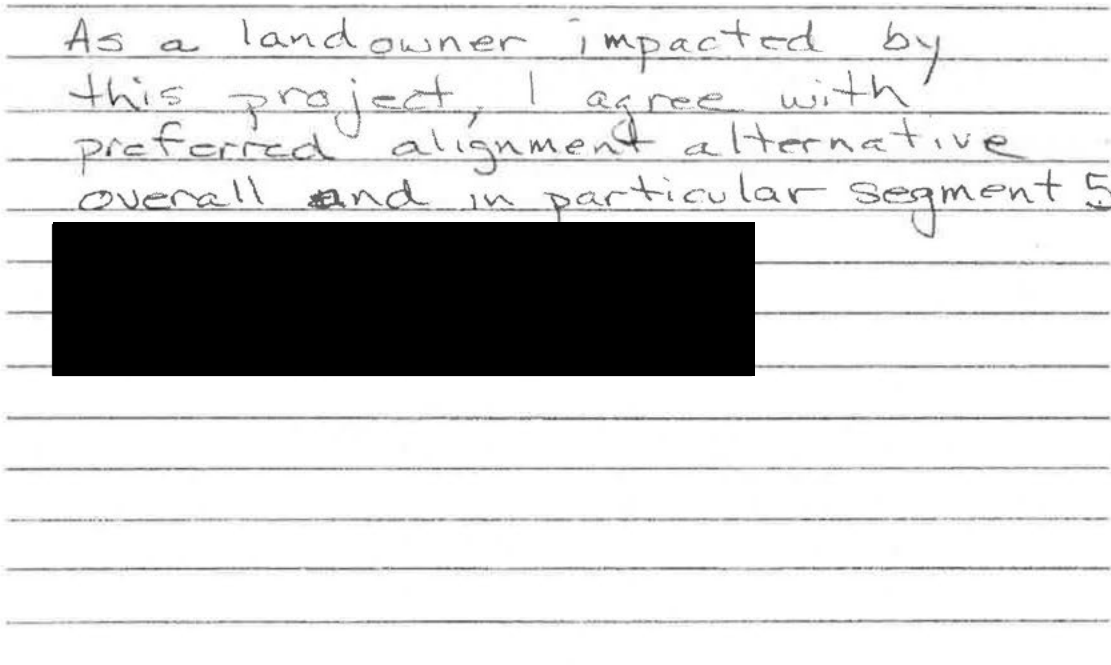 As a landowner impacted by
this project, I agree with
preferred alignment alternative
overall and in particular segment 5